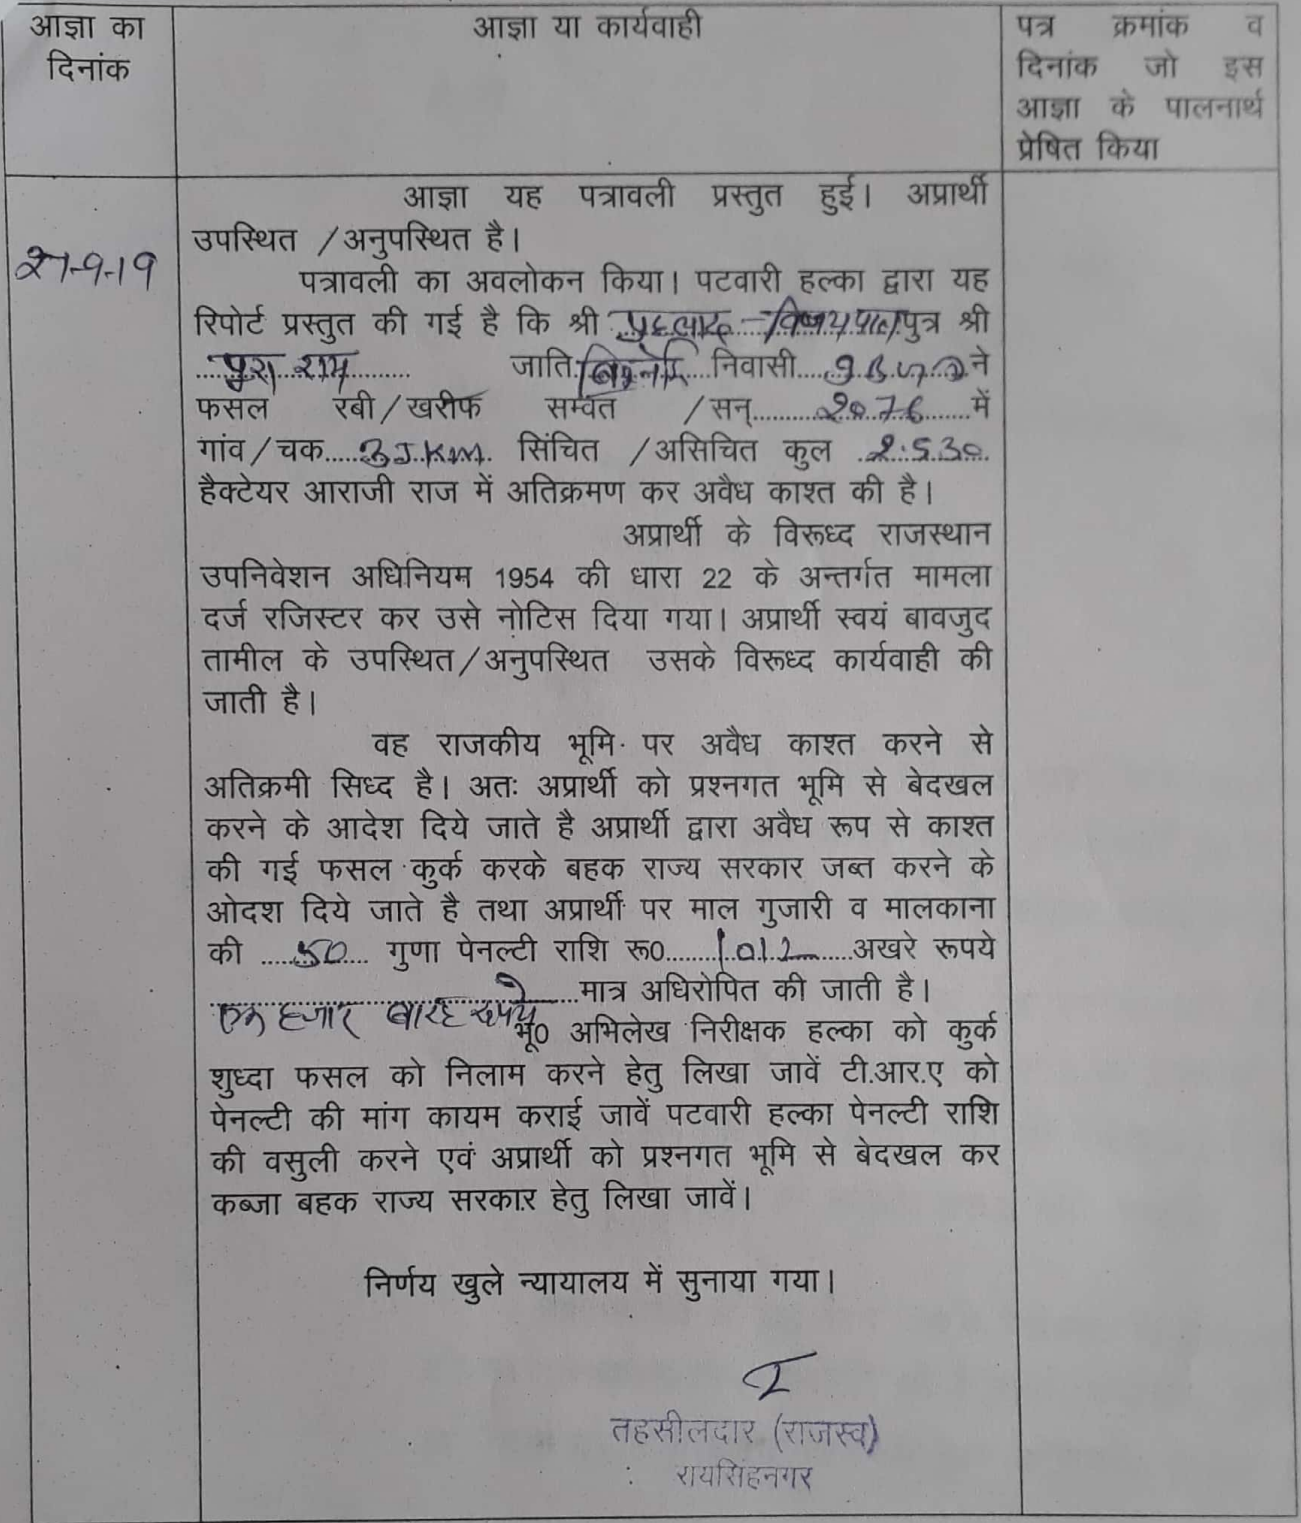 आज्ञा का
दिनांक
आज्ञा या कार्यवाही
पत्र क्रमांक व
दिनांक जो इस
आज्ञा के पालनार्थ
प्रेषित किया
27-9-19
आज्ञा यह पत्रावली प्रस्तुत हुई। अप्रार्थी
उपस्थित /अनुपस्थित है।
पत्रावली का अवलोकन किया। पटवारी हल्का द्वारा यह
रिपोर्ट प्रस्तुत की गई है कि श्री प्रहलाद - विजयपाल पुत्र श्री
पुरा राम जाति निवासी ने
फसल रबी/खरीफ सम्वत /सन् 2076 में
गांव/चक 3J.KM. सिंचित /असिचित कुल 2.530
हैक्टेयर आराजी राज में अतिक्रमण कर अवैध काश्त की है।
अप्रार्थी के विरूध्द राजस्थान
उपनिवेशन अधिनियम 1954 की धारा 22 के अन्तर्गत मामला
दर्ज रजिस्टर कर उसे नोटिस दिया गया। अप्रार्थी स्वयं बावजुद
तामील के उपस्थित/अनुपस्थित उसके विरूध्द कार्यवाही की
जाती है।
वह राजकीय भूमि पर अवैध काश्त करने से
अतिक्रमी सिध्द है। अतः अप्रार्थी को प्रश्नगत भूमि से बेदखल
करने के आदेश दिये जाते है अप्रार्थी द्वारा अवैध रूप से काश्त
की गई फसल कुर्क करके बहक राज्य सरकार जब्त करने के
ओदश दिये जाते है तथा अप्रार्थी पर माल गुजारी व मालकाना
की 50 गुणा पेनल्टी राशि रू0 1012 अखरे रूपये
एक हजार बारह रुपये मात्र अधिरोपित की जाती है।
भू0 अभिलेख निरीक्षक हल्का को कुर्क
शुध्दा फसल को निलाम करने हेतु लिखा जावें टी.आर.ए को
पेनल्टी की मांग कायम कराई जावें पटवारी हल्का पेनल्टी राशि
की वसुली करने एवं अप्रार्थी को प्रश्नगत भूमि से बेदखल कर
कब्जा बहक राज्य सरकार हेतु लिखा जावें।
निर्णय खुले न्यायालय में सुनाया गया।
तहसीलदार (राजस्व)
रायसिंहनगर